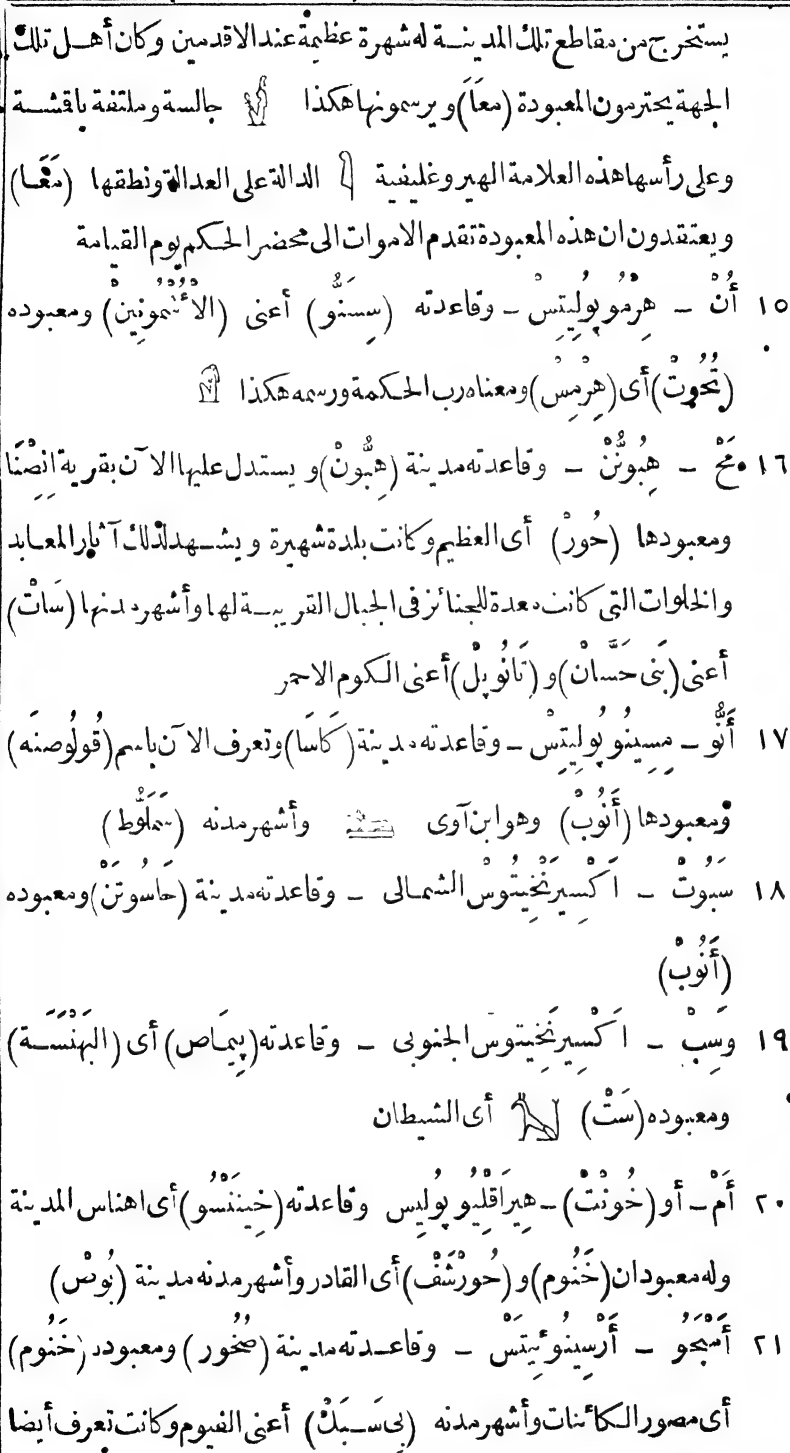 يستخرج من مقاطع تلك المدينة له شهرة عظيمة عند الاقدمين وكان أهل تلك
الجهة يحترمون المعبودة (معَاَ) ويرسمونها هكذا جالسة وملتفة باقشة
وعلى رأسها هذه العلامة الهيروغليفية الدالة على العدالة ونطقها (مَعَا)
ويعتقدون ان هذه المعبودة تقدم الاموات الى محضر الحكم يوم القيامة
١٥ أُنْ ـ هِرْمُو پُولِيتِسْ ـ وقاعدته (سِسنُّو) أعنى (الاُشْمُونِينْ) ومعبوده
(تُحُوتْ) أى (هِرْمِسْ) ومعناه رب الحكمة ورسمه هكذا
١٦ مَحْ ـ هِبُونُنْ ـ وقاعدته مدينة (هِبُّونْ) ويستدل عليها الآن بقرية انْصِنَا
ومعبودها (حُورْ) أى العظيم وكانت بلدة شهيرة ويشهد لذلك آثار المعابد
والخلوات التى كانت معدة للجنائز فى الجبال القريبة لها وأشهر مدنها (سَاتْ)
أعنى (بَنِى حَسَّانْ) و (تَانُوبِلْ) أعنى الكوم الاحمر
١٧ أَنُّو ـ مِسِينُو پُولِيتِسْ ـ وقاعدته مدينة (كَاسَا) وتعرف الآن باسم (قُولُوصنَه)
ومعبودها (أَنُوبْ) وهو ابن آوى وأشهر مدنه (سَمَلُّوط)
١٨ سَبُوتْ ـ اَكْسِيرَنْخِيتُوسْ الشمالى ـ وقاعدته مدينة (حَاسُوتَنْ) ومعبوده
(أَنُوبْ)
١٩ وسِبْ ـ اَكْسِيرَنْخِيتوس الجنوبى ـ وقاعدته (پِيمَاص) أى (البَهْنَسَة)
ومعبوده (سَتْ) أى الشيطان
٢٠ أَمْ ـ أو (خُونْتْ) ـ هِيرَاقْلِيُو پُولِيس وقاعدته (خِينَنْسُو) أى اهناس المدينة
وله معبودان (خَنُوم) و (حُورْشَفْ) أى القادر وأشهر مدنه مدينة (بُوش)
٢١ أَمْبَحُو ـ أَرْسِينُوئِيتَسْ ـ وقاعدته مدينة (صْحُور) ومعبوده (خَنُوم)
أى مصور الكائنات وأشهر مدنه (بِى سَبَكْ) أعنى الفيوم وكانت تعرف أيضا